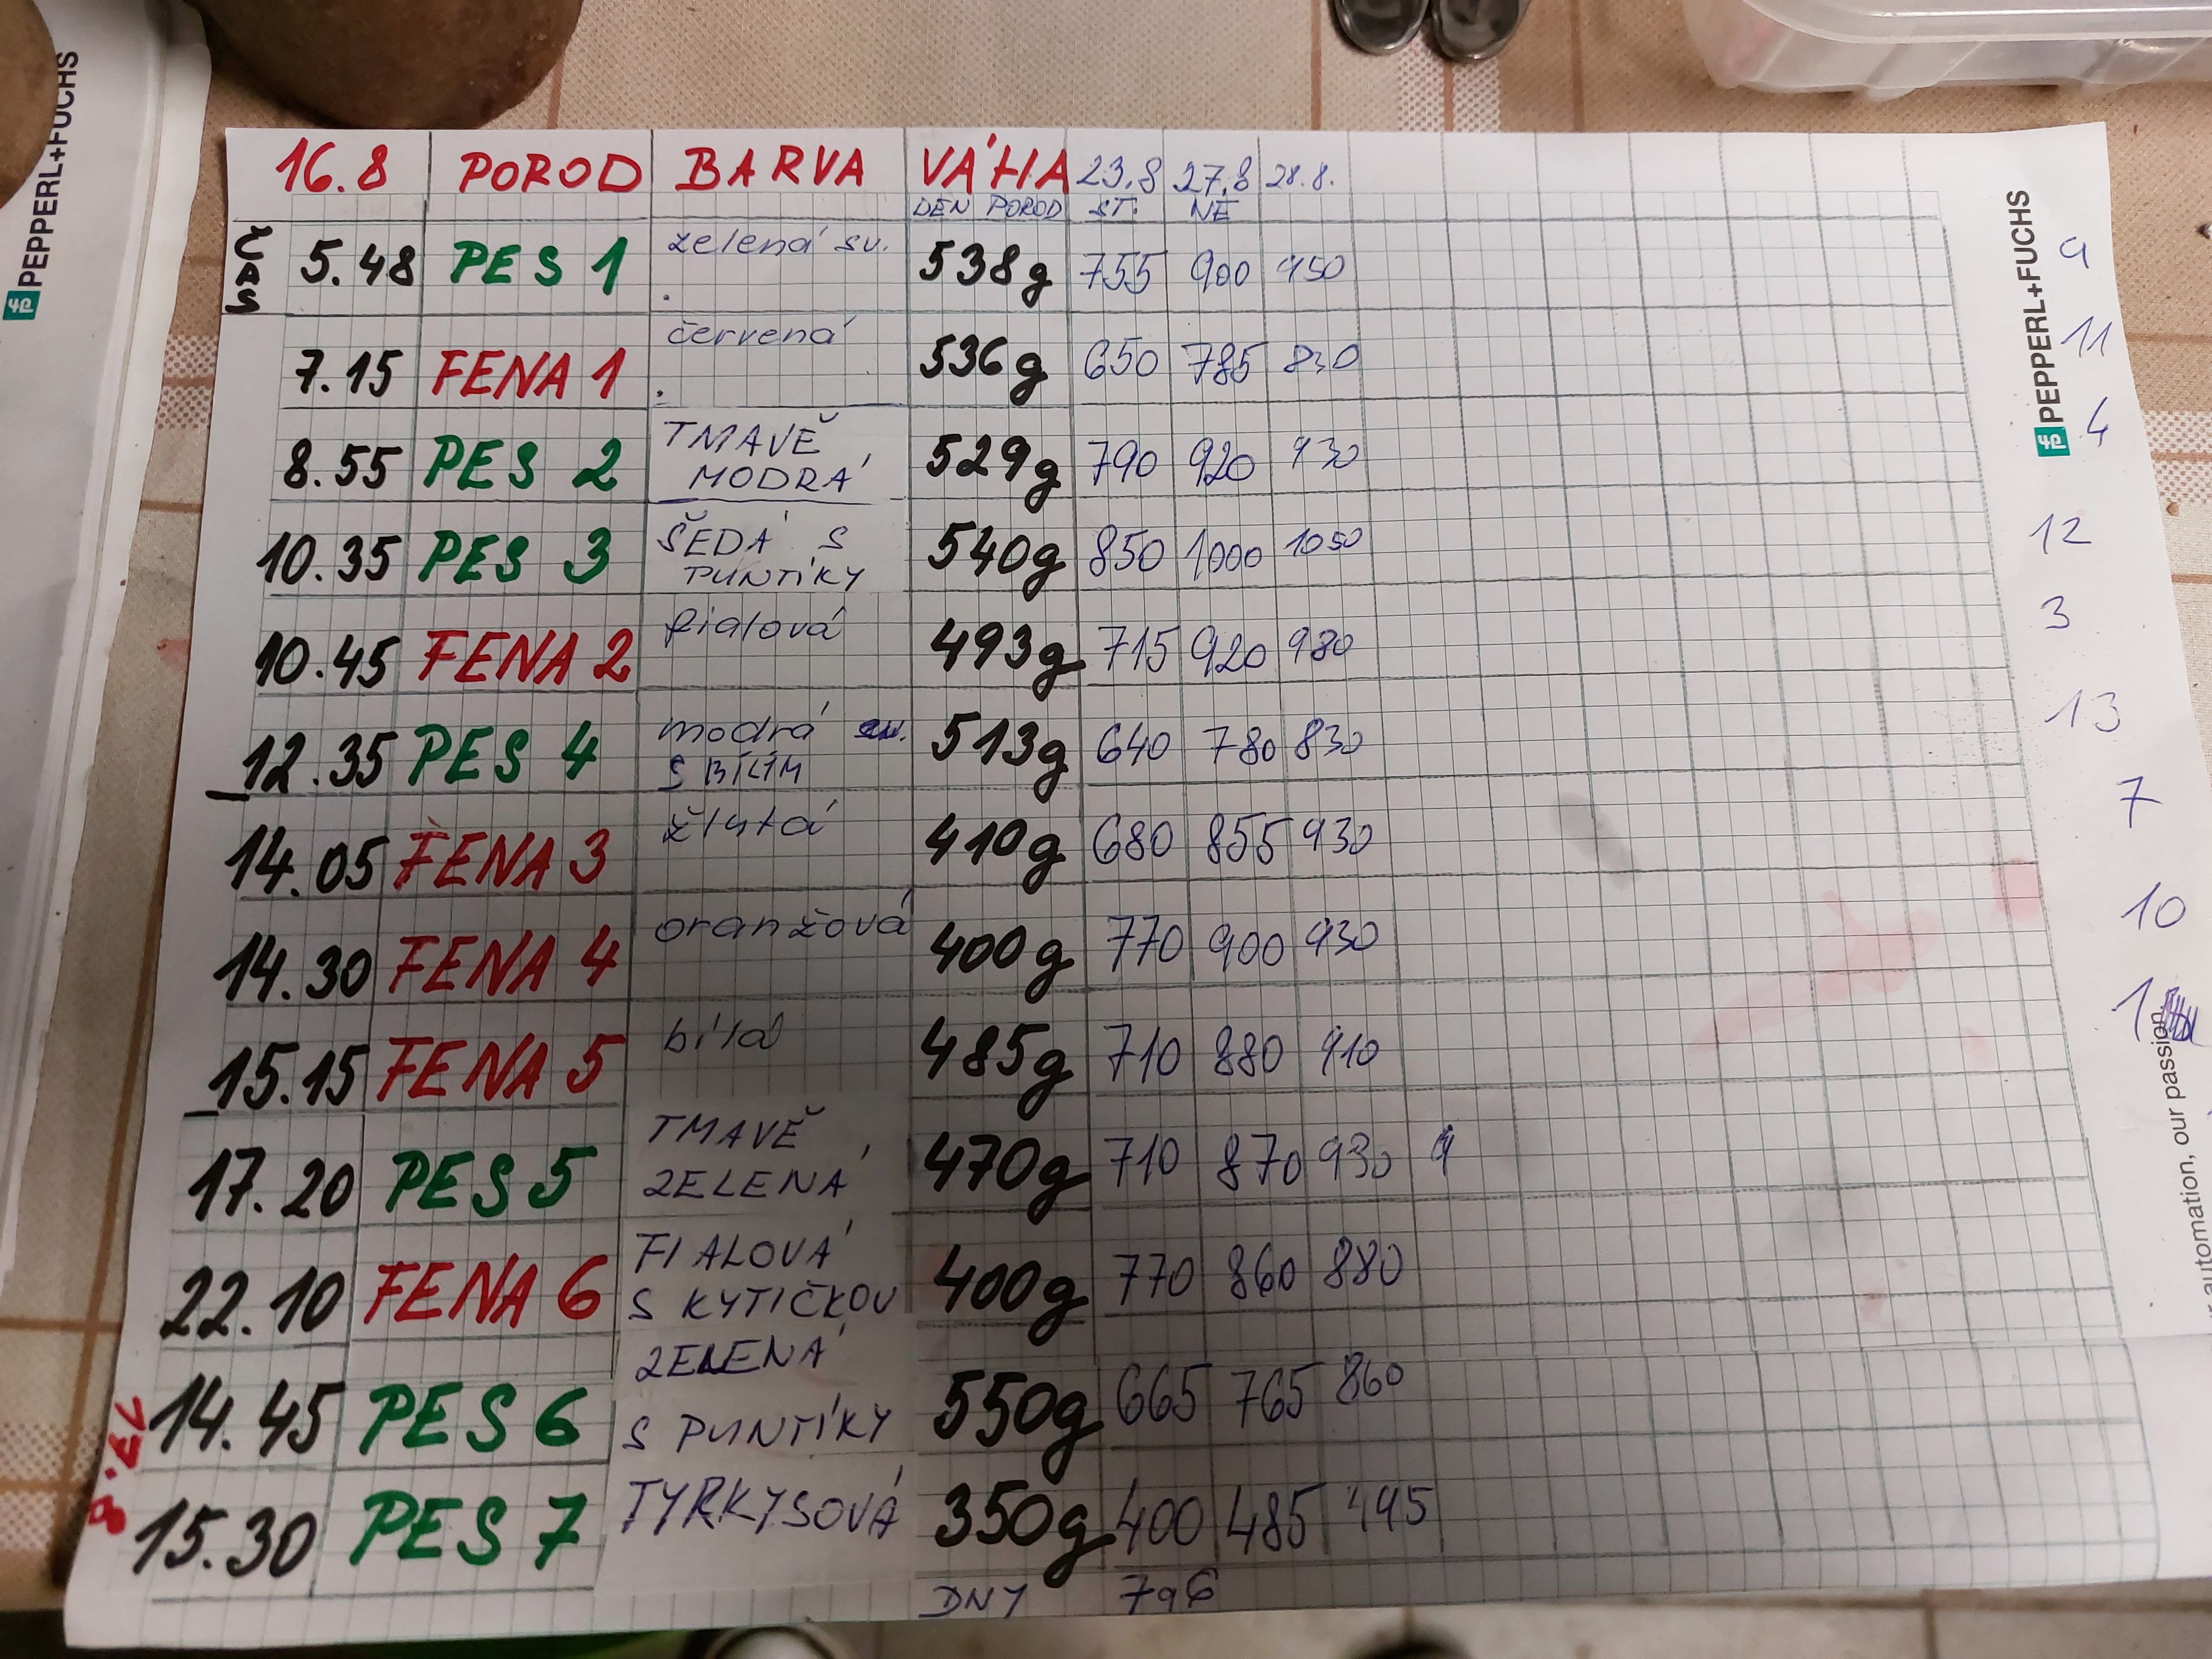 PEPPERL+FUCHS
16.8 POROD BARVA VÁHA 23.8 27.8 28.8.
DEN POROD ST. NE
ČAS 5.48 PES 1 zelená sv. 538g 755 900 950
7.15 FENA 1 červená 536g 650 785 830
8.55 PES 2 TMAVĚ MODRÁ 529g 790 920 930
10.35 PES 3 ŠEDÁ S PUNTÍKY 540g 850 1000 1050
10.45 FENA 2 fialová 493g 715 920 980
12.35 PES 4 modrá S BÍLÍM 513g 640 780 830
14.05 FENA 3 žlutá 410g 680 855 930
14.30 FENA 4 oranžová 400g 770 900 930
15.15 FENA 5 bílá 485g 710 880 910
17.20 PES 5 TMAVĚ ZELENÁ 470g 710 870 930
22.10 FENA 6 FIALOVÁ S KYTIČKOU 400g 770 860 880
14.45 PES 6 ZELENÁ S PUNTÍKY 550g 665 765 860
15.30 PES 7 TYRKYSOVÁ 350g 400 485 495
17.8
DNY 7a6
PEPPERL+FUCHS
automation, our passion.
9
11
4
12
3
13
7
10
1